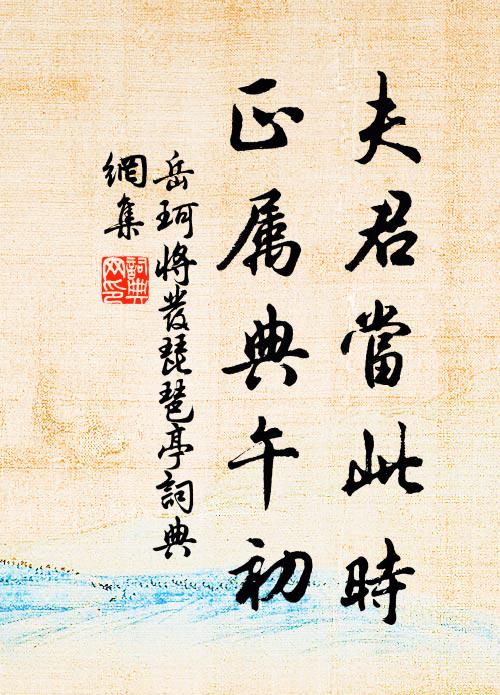 夫君當此時
正属典午初
岳珂將發琵琶亭詞典
網集
詞典
网印